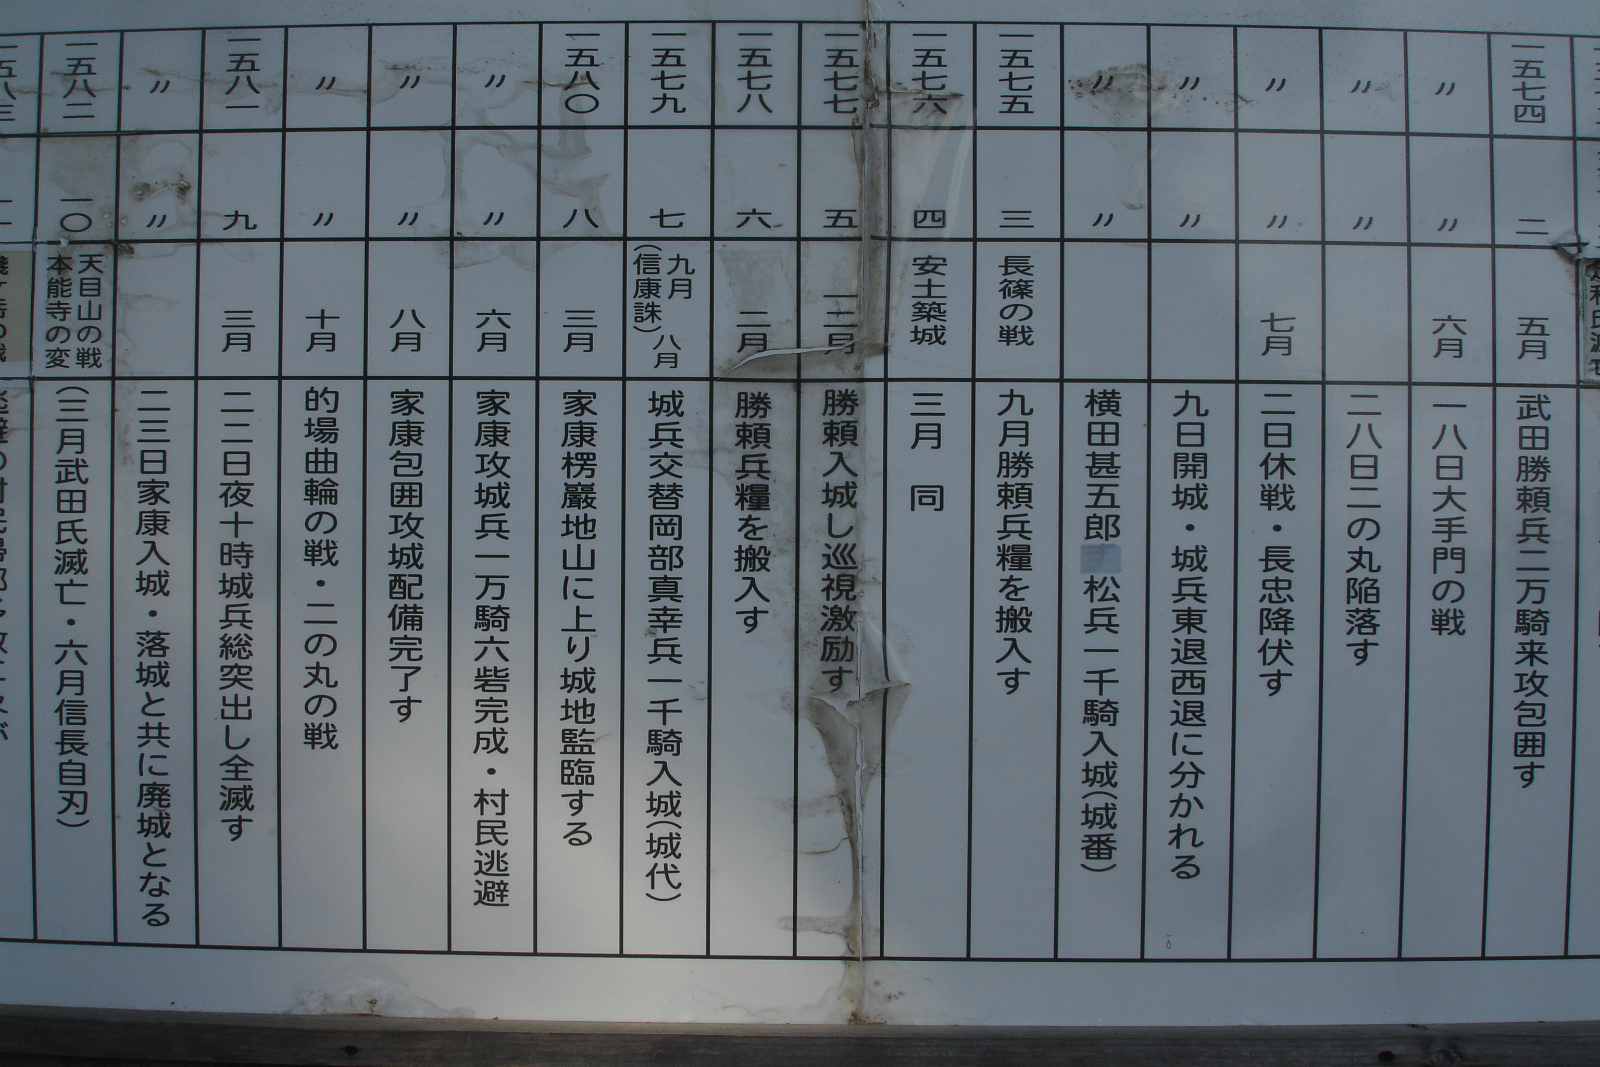 一五七四 二 五月 武田勝頼兵二万騎来攻包囲す
〃 〃 六月 一八日大手門の戦
〃 〃 二八日二の丸陥落す
〃 〃 七月 二日休戦・長忠降伏す
〃 〃 九日開城・城兵東退西退に分かれる
〃 〃 横田甚五郎 松兵一千騎入城(城番)
一五七五 三 長篠の戦 九月勝頼兵糧を搬入す
一五七六 四 安土築城 三月 同
一五七七 五 一二月 勝頼入城し巡視激励す
一五七八 六 二月 勝頼兵糧を搬入す
一五七九 七 九月 (信康誅) 八月 城兵交替岡部真幸兵一千騎入城(城代)
一五八〇 八 三月 家康楞巖地山に上り城地監臨する
〃 〃 六月 家康攻城兵一万騎六砦完成・村民逃避
〃 〃 八月 家康包囲攻城配備完了す
〃 〃 十月 的場曲輪の戦・二の丸の戦
一五八一 九 三月 二二日夜十時城兵総突出し全滅す
〃 〃 二三日家康入城・落城と共に廃城となる
一五八二 一〇 天目山の戦 本能寺の変 (三月武田氏滅亡・六月信長自刃)
一五八三 一一